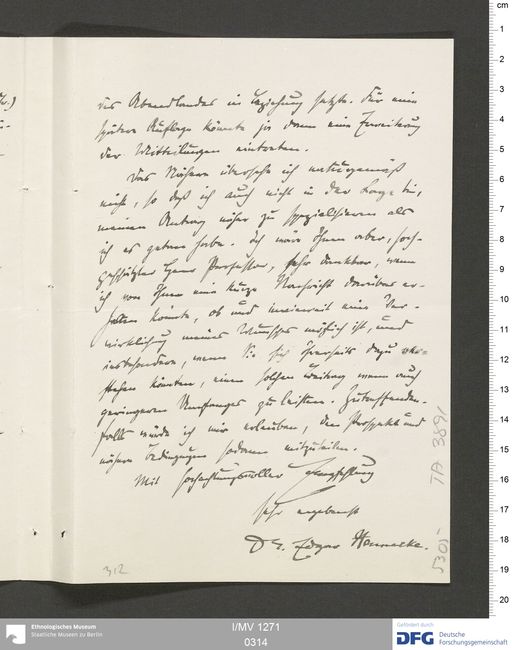 des Abendlandes in Beziehung setzte. Für eine
spätere Auflage könnte ja dann eine Erweiterung
der Mitteilungen eintreten.
Das Nähere übersehe ich naturgemäß
nicht, so daß ich auch nicht in der Lage bin,
meinen Antrag näher zu spezialisieren als
ich es getan habe. Ich wäre Ihnen aber, hoch-
geschätzter Herr Professor, sehr dankbar, wenn
ich von Ihnen eine kurze Nachricht darüber er-
halten könnte, ob und inwieweit eine Ver-
wirklichung meines Wunsches möglich ist, und
insbesondere, wenn Sie sich Ihrerseits dazu ver-
stehen könnten, einen solchen Beitrag wenn auch
geringeren Umfanges zu leisten. Zutreffenden-
falls würde ich mir erlauben, den Prospekt und
nähere Bedingungen sodann mitzuteilen.
Mit hochachtungsvoller Empfehlung
sehr ergebenst
Dr. Edgar Hennecke.
312
TA 3891
5305
Ethnologisches Museum
Staatliche Museen zu Berlin
I/MV 1271
0314
Gefördert durch
DFG Deutsche
Forschungsgemeinschaft
cm
1
2
3
4
5
6
7
8
9
10
11
12
13
14
15
16
17
18
19
20